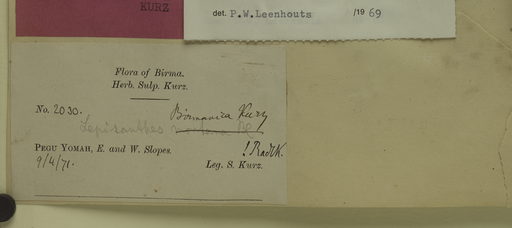 KURZ
det. P.W.Leenhouts /1969
Flora of Birma.
Herb. Sulp. Kurz.
No. 2030. Birmanica Kurz
Lepisanthes montana Bl
PEGU YOMAH, E. and W. Slopes. ! Radlk.
9/4/71. Leg. S. Kurz.